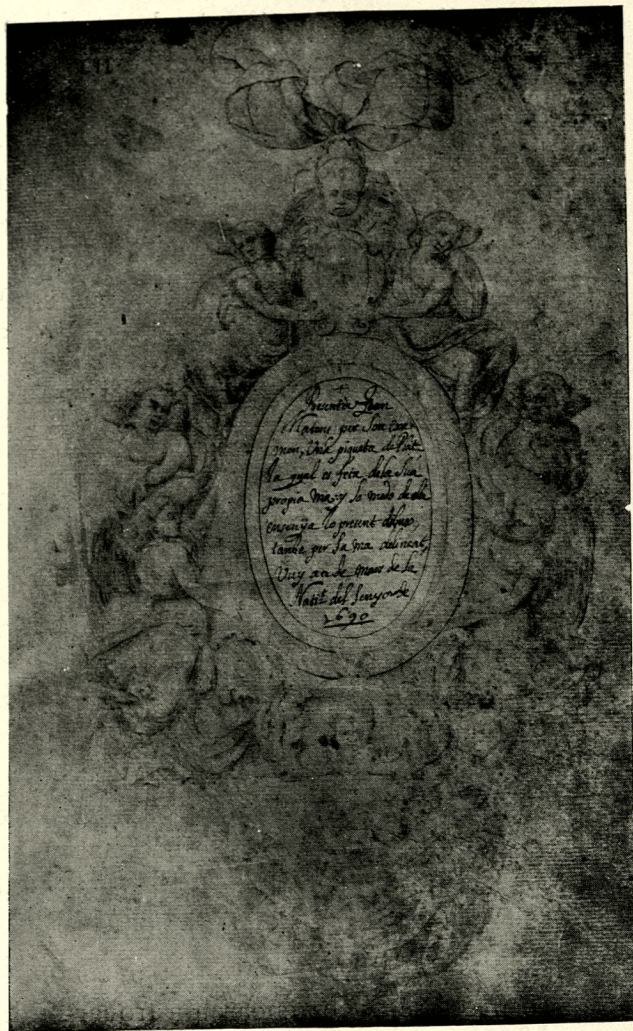 Presenta Joan
Matons per Son exa-
men, Una piqueta de Plata
la qual es feta de la Sua
propia Ma, y lo modo de ella
ensenya lo present dibuix,
tambe per Sa ma delineat,
Vuy als de Mars de la
Natit del Senyor de
1690